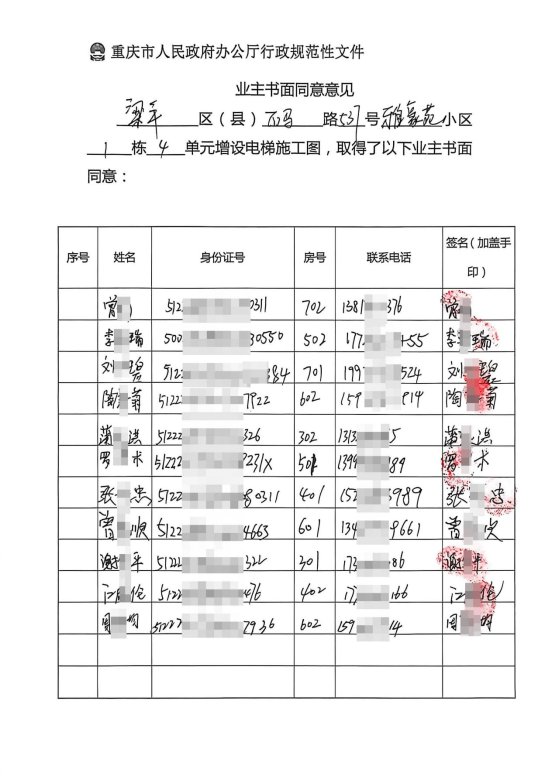 重庆市人民政府办公厅行政规范性文件
业主书面同意意见
梁平 区（县） 石马 路 537 号 雅豪苑 小区
1 栋 4 单元增设电梯施工图，取得了以下业主书面
同意：
序号 姓名 身份证号 房号 联系电话 签名（加盖手印）
曾 512 0311 702 1381 376 曾
李 瑞 500 30550 502 177 55 李 瑞
刘 碧 5122 384 701 199 524 刘 碧
陶 菊 51222 7922 602 159 914 陶 菊
洪 51222 326 302 1313 5 洪
罗 术 51222 231X 501 1399 89 罗 术
张 忠 5122 80311 401 152 3989 张 忠
曾 顺 5122 4663 601 134 9661 曾
谢 平 51222 322 301 173 86 谢 平
江 伦 5122 476 402 17 166 江 伦
周 均 51222 7936 602 159 14 周 均